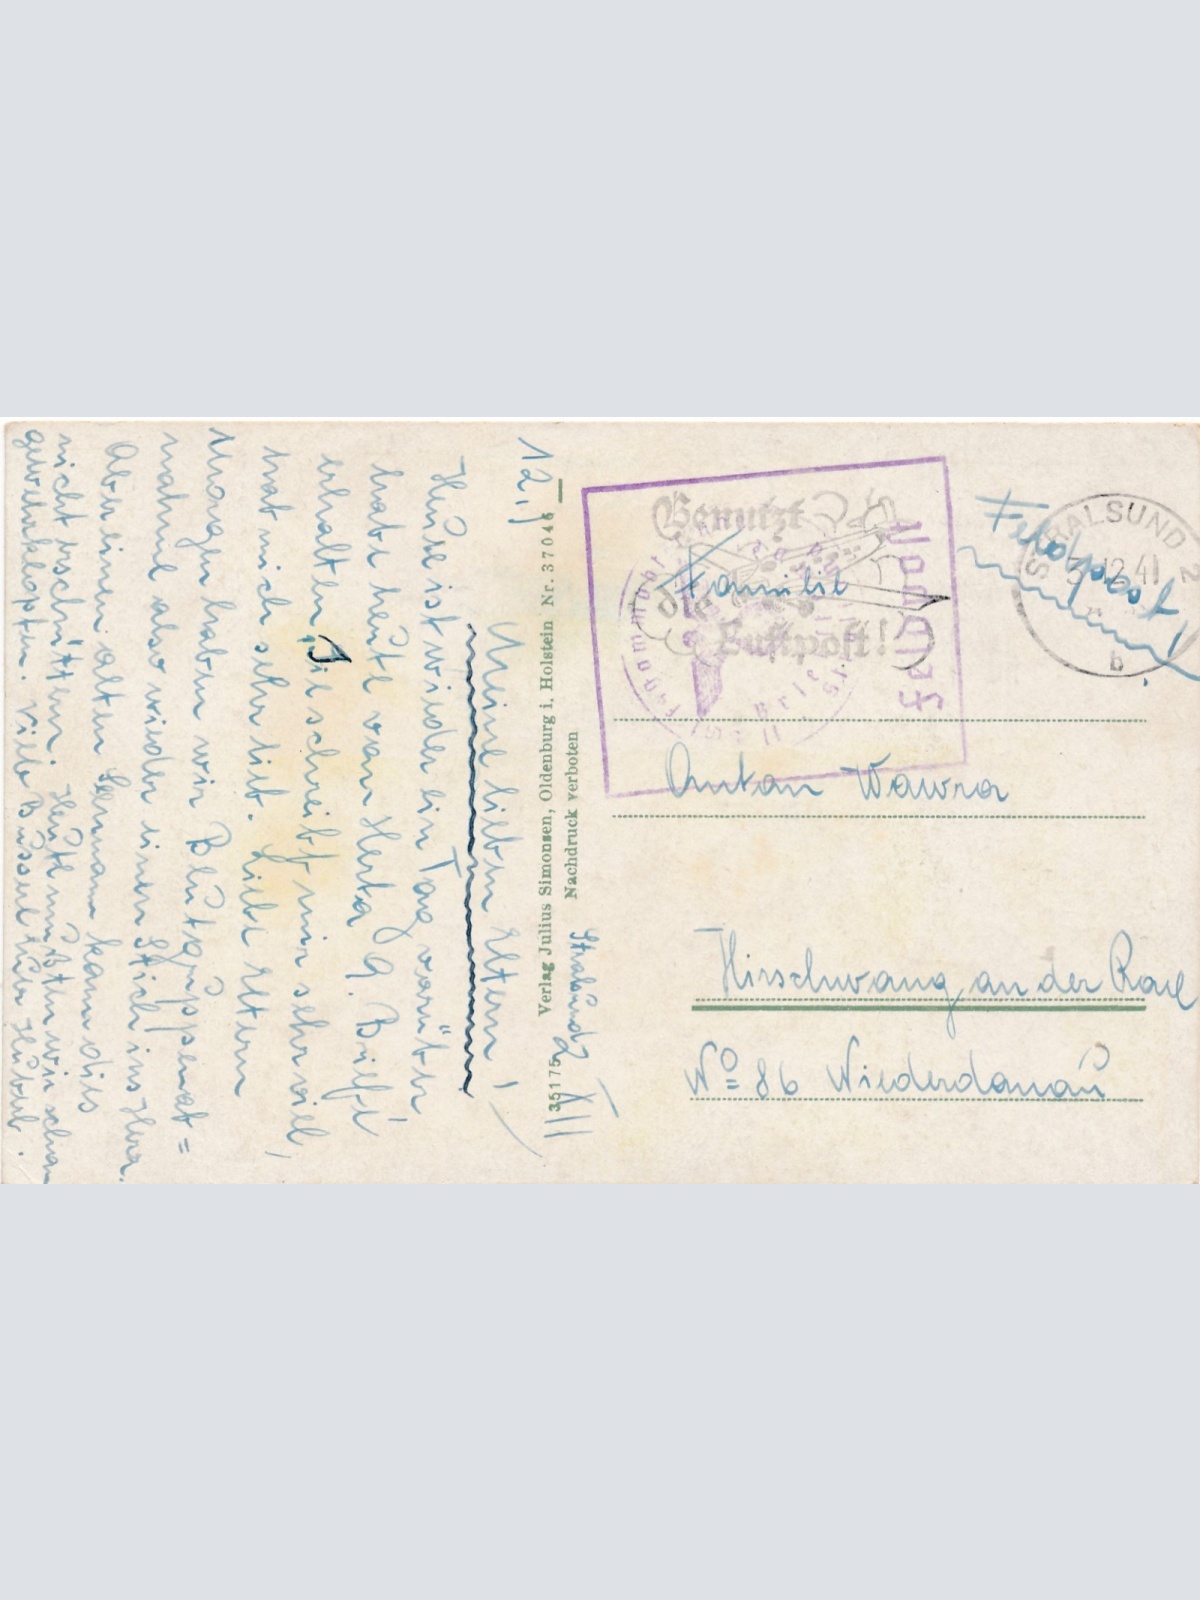 12.
Meine lieben Eltern!
Heute ist wieder ein Tag vorüber
habe heute von Herta 9. Brief
erhalten. Sie schreibt mir sehr viel,
hat mich sehr lieb. Liebe Eltern
Morgen haben wir Blutgruppenab=
nahme also wieder einen Stich ins
Aber einen alten kann dies
nicht erschüttern. Heute mußten wir schon
viele Bussel Euer
Verlag Julius Simonsen, Oldenburg i. Holstein Nr. 37046
Nachdruck verboten
35175
Stralsund XII
Benutzt
die
Luftpost!
Feldpost
Feldpost!
STRALSUND 2
12.41
b
Familie
Anton Wawra
Hirschwang an der Rax
No 86 Niederdonau